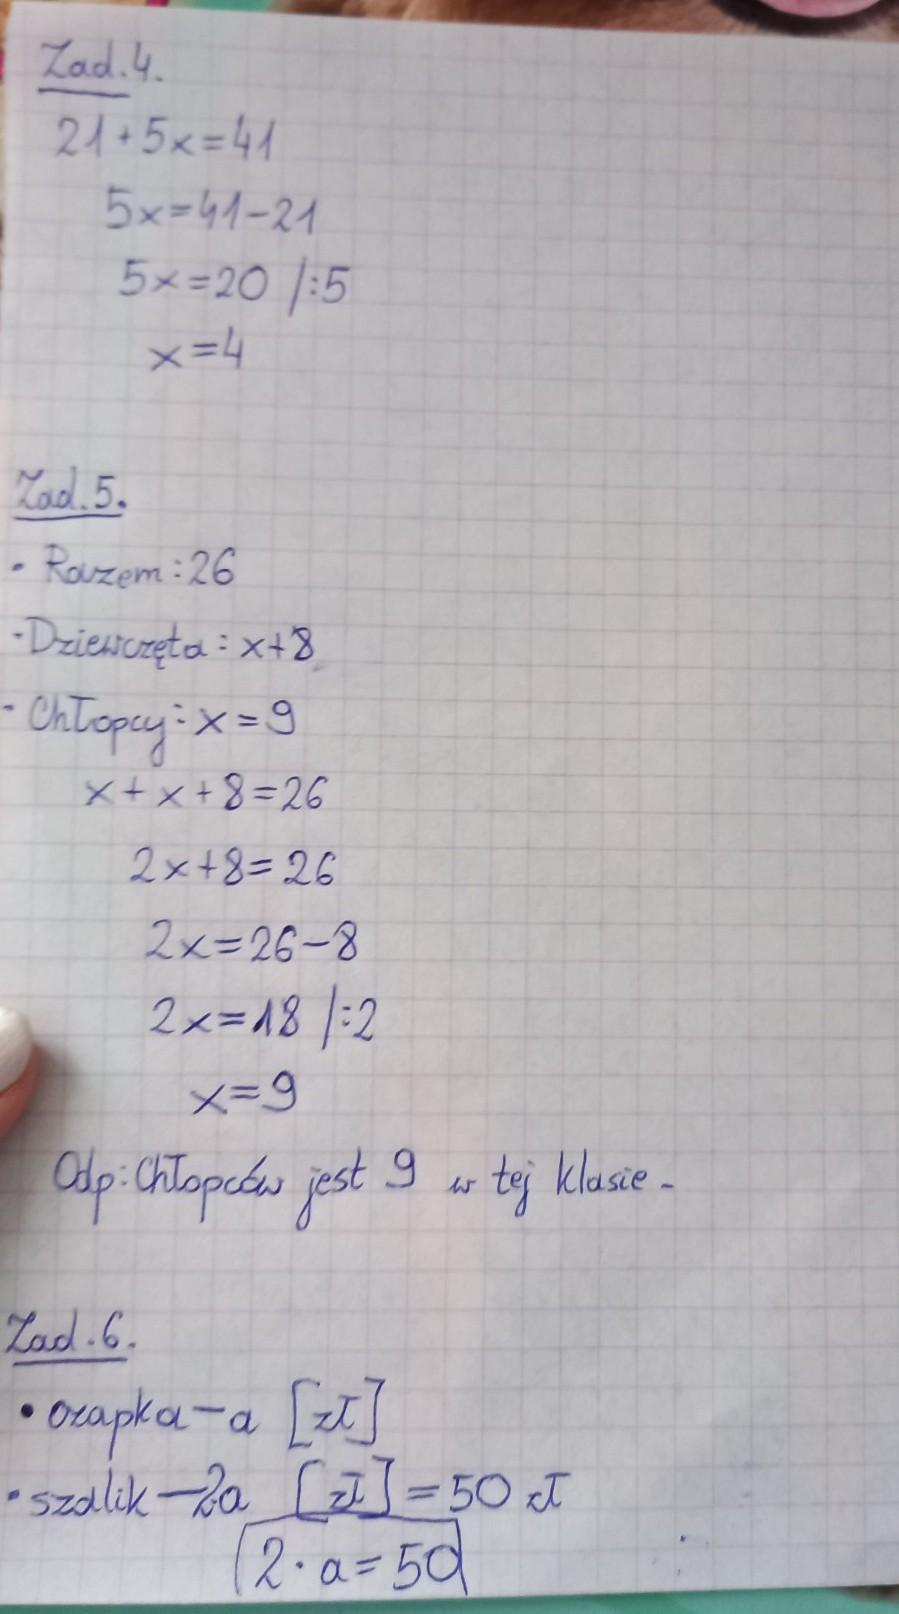 Zad.4.
21+5x=41
5x=41-21
5x=20 /:5
x=4
Zad.5.
• Razem: 26
- Dziewczęta: x+8
- Chłopcy: x=9
x+x+8=26
2x+8=26
2x=26-8
2x=18 /:2
x=9
Odp: Chłopców jest 9 w tej klasie.
Zad.6.
• czapka-a [zł]
• szalik-2a [zł]=50 zł
2·a=50